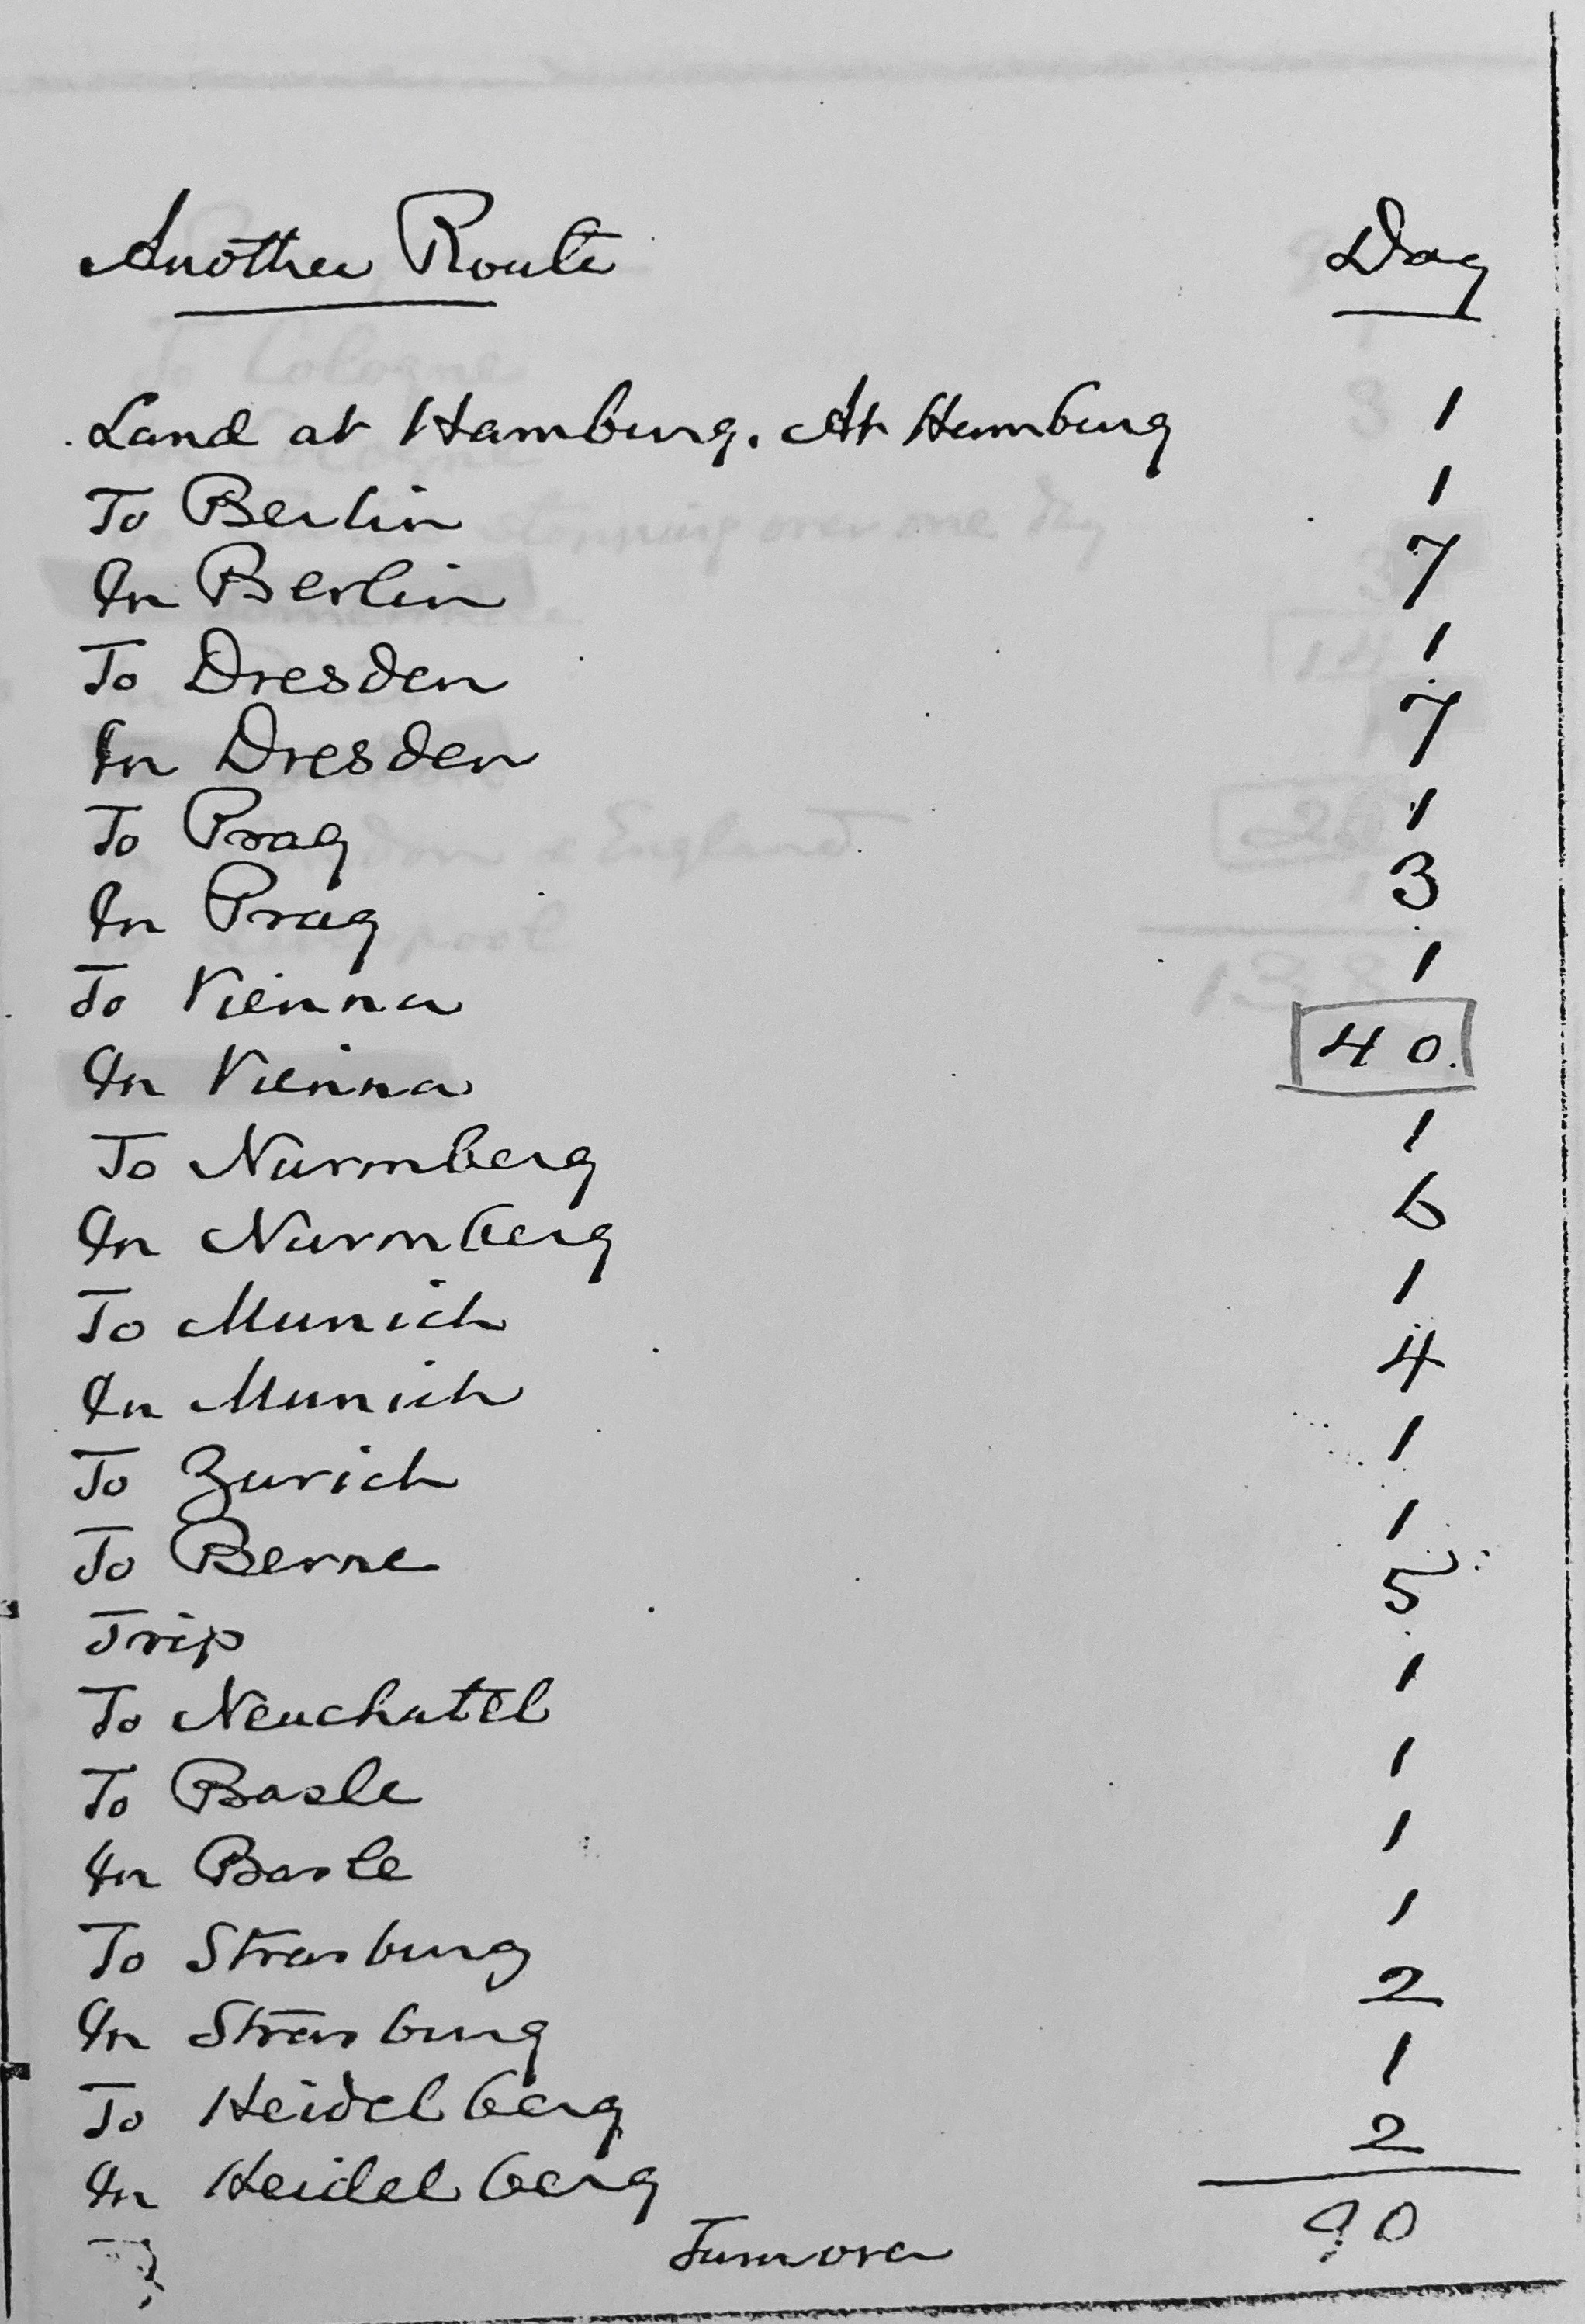 Another Route Day
Land at Hamburg. At Hamburg 1
To Berlin 1
In Berlin 7
To Dresden 1
In Dresden 7
To Prag 1
In Prag 3
To Vienna 1
In Vienna 40.
To Nurmberg 1
In Nurmberg 6
To Munich 1
In Munich 4
To Zurich 1
To Berne 1
Trip 5
To Neuchatel 1
To Basle 1
In Basle 1
To Strasburg 1
In Strasburg 2
To Heidelberg 1
In Heidelberg 2
Turnover 90